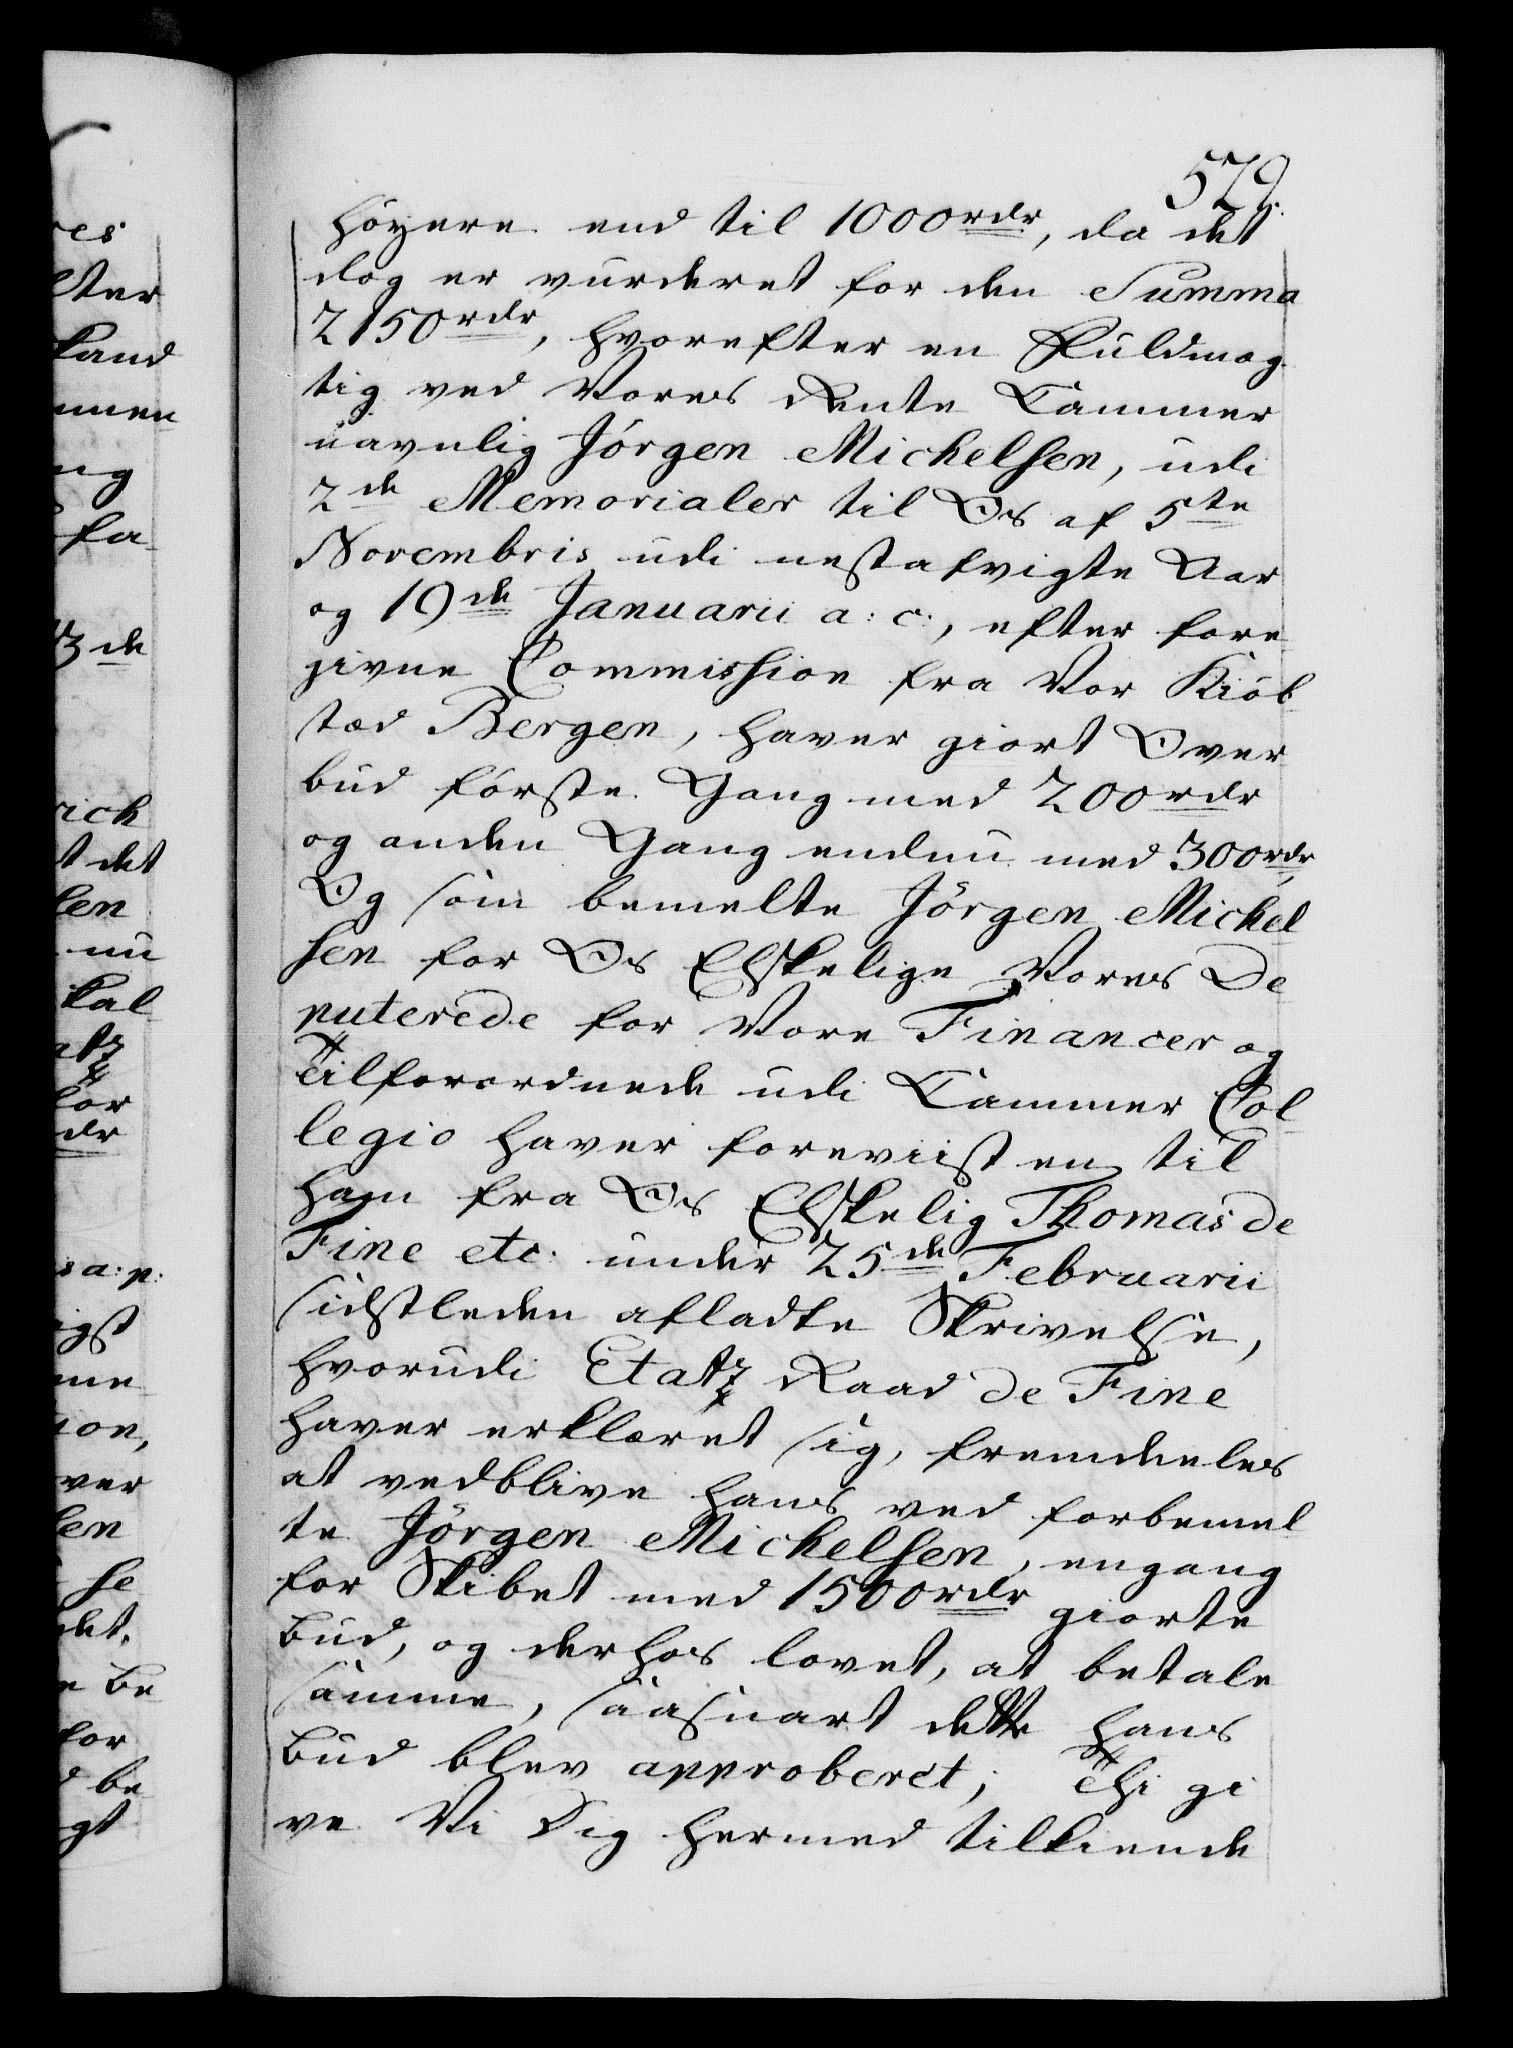 579.
höyere end til 1000rdr, da det
dog er vurderet for den Summa
2150rdr, hvorefter en Fuldmæg-
tig ved Vores Rente Cammer
navnlig Jörgen Michelsen, udi
2de Memorialer til Os af 5te
Novembris udi nestafvigte Aar
og 19de Januarii a: c:, efter fore
givne Commission fra Vor Kiöb
stæd Bergen, haver giort Over
bud förste Gang med 200rdr
og anden Gang endnu med 300rdr,
Og som bemelte Jörgen Michel
sen for Os Elskelige Vores De
puterede for Vore Financer og
Tilforordnede udi Cammer Col-
legio haver foreviist en til
ham fra Os Elskelig Thomas de
Fine etc: under 25de Februarii
sidstleden afladte Skrivelse,
hvorudi Etatz Raad de Fine
haver erklæret sig, fremdeeles
at vedblive hans ved forbemel
te Jörgen Michelsen, engang
for Skibet med 1500rdr giorte
Bud, og derhos lovet, at betale
samme, saasnart dette hans
Bud blev approberet; Thi gi
ve Vi Dig hermed tilkiende
res
lter
kand
mmen
ng
fa-
13de
rich
t det
len
nu
kal
atz
for
dr
s a: p:
igst
me
ion,
ver
len
se
det.
e be
for
d be
gt